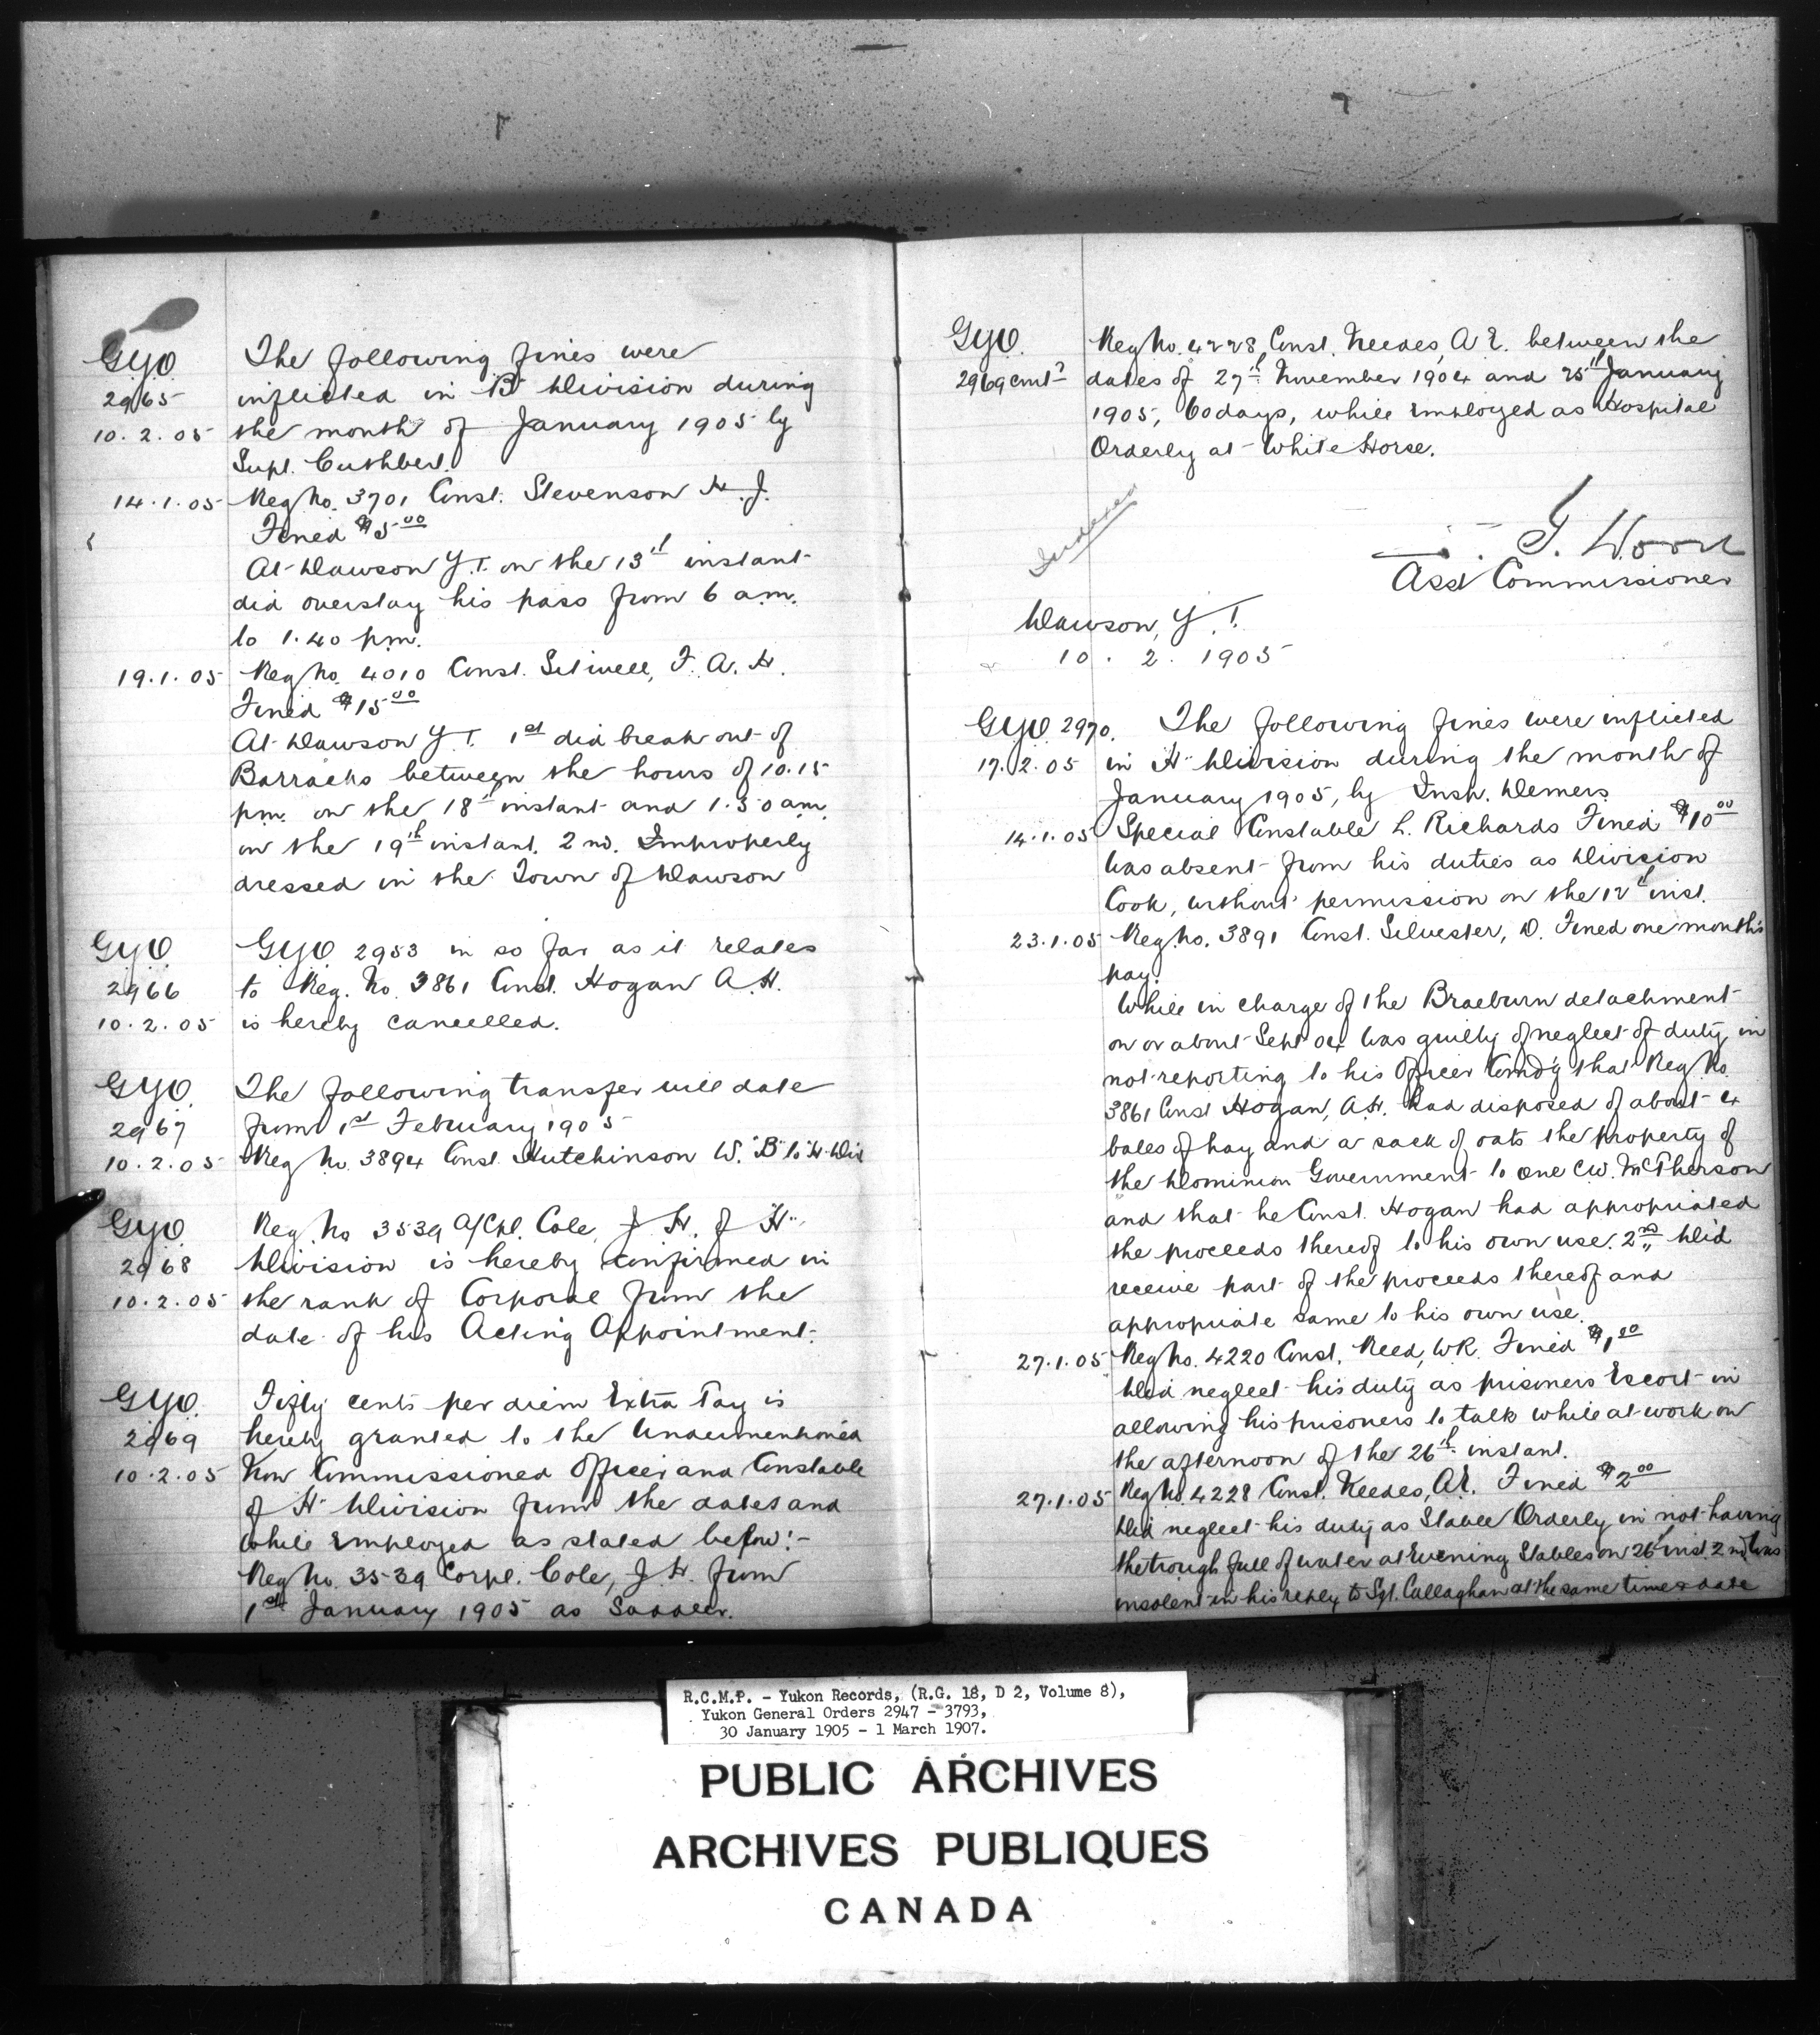 GYO
2965
10.2.05
The following fines were
inflicted in "B" Division during
the month of January 1905 by
Supt. Cuthbert.
14.1.05 Reg No. 3701 Const. Stevenson H. J.
Fined $5.00
At Dawson Y.T. on the 13th instant
did overstay his pass from 6 am.
to 1.40 pm.
19.1.05 Reg No. 4010 Const. Stiwell, F. A. H.
Fined $15.00
At Dawson Y.T. 1st did break out of
Barracks between the hours of 10.15
pm. on the 18th instant and 1.30 am.
on the 19th instant. 2nd. Improperly
dressed in the Town of Dawson
GYO
2966
10.2.05
GYO 2953 in so far as it relates
to Reg. No. 3861 Const. Hogan A.H.
is hereby cancelled.
GYO.
2967
10.2.05
The following transfer will date
from 1st February 1905
Reg No. 3894 Const. Hutchinson W. "B" to "H" Div
GYO.
2968
10.2.05
Reg. No 3539 A/Cpl. Cole, J. H. of "H"
Division is hereby confirmed in
the rank of Corporal from the
date of his Acting Appointment.
GYO.
2969
10.2.05
Fifty cents per diem Extra Pay is
hereby granted to the Undermentioned
Non Commissioned Officer and Constable
of "H" Division from the dates and
while employed as stated below:-
Reg No. 3539 Corpl. Cole, J. H. from
1st January 1905 as Saddler.
GYO.
2969 cont?
Reg No. 4228, Const. Needes, A E. between the
dates of 27th November 1904 and 25th January
1905, 60 days, while employed as Hospital
Orderly at White Horse.
Indexed
Z. T. Wood
Asst Commissioner
Dawson, Y.T.
10. 2. 1905
GYO. 2970.
17.2.05
The following fines were inflicted
in "H" Division during the month of
January 1905, by Insp. Demers.
14.1.05 Special Constable L. Richards Fined $10.00
Was absent from his duties as Division
Cook, without permission on the 12th inst.
23.1.05 Reg. No. 3891 Const. Silvester, D. Fined one month's
pay.
While in charge of the Braeburn detachment
on or about Sept 04 was guilty of neglect of duty in
not reporting to his Officer Comdg that Reg No.
3861 Const Hogan, A.H. had disposed of about 4
bales of hay and a sack of oats the property of
the Dominion Government to one C.W. McPherson
and that he Const. Hogan had appropriated
the proceeds thereof to his own use. 2nd Did
receive part of the proceeds thereof and
appropriate same to his own use.
27.1.05 Reg No. 4220 Const. Reed, W.R. Fined $1.00
Did neglect his duty as prisoners Escort in
allowing his prisoners to talk while at work on
the afternoon of the 26th instant.
27.1.05 Reg No. 4228 Const. Needes, A.E. Fined $2.00
Did neglect his duty as Stable Orderly in not having
the trough full of water at Evening Stables on 26th inst. 2nd, Was
insolent in his reply to Sgt. Callaghan at the same time & date
R.C.M.P. - Yukon Records, (R.G. 18, D 2, Volume 8),
Yukon General Orders 2947 - 3793,
30 January 1905 - 1 March 1907.
PUBLIC ARCHIVES
ARCHIVES PUBLIQUES
CANADA